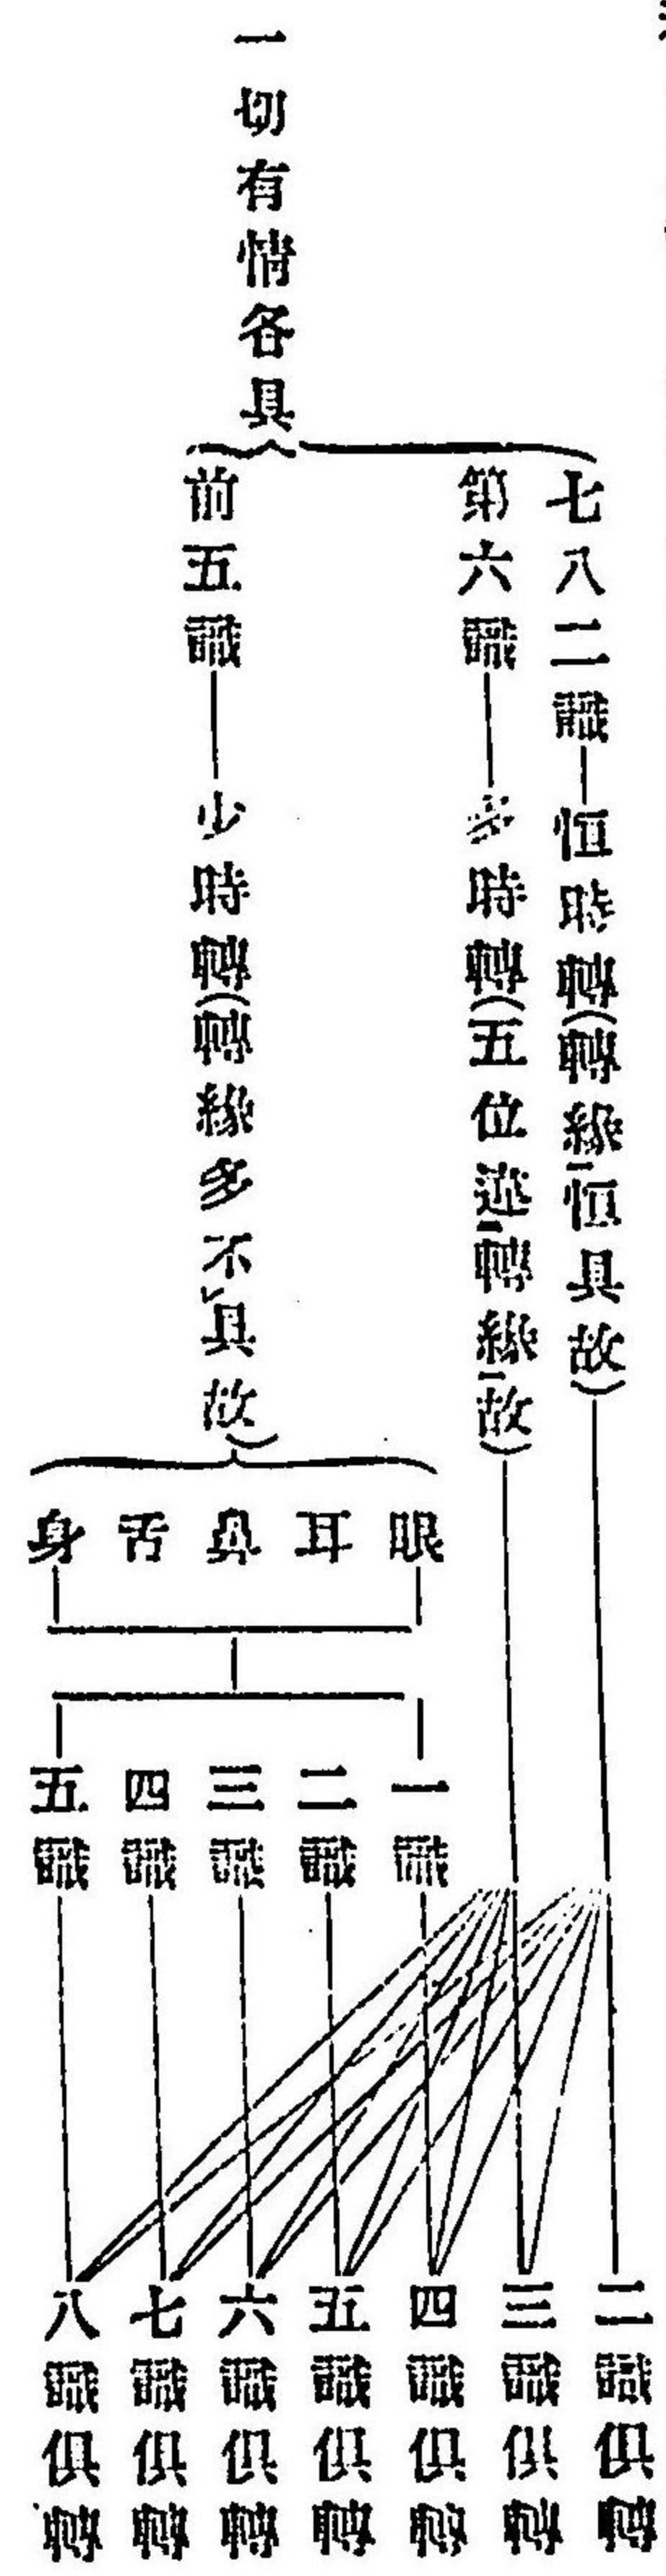 一切有情各具
七八二識—恒時轉(轉緣恒具故)
第六識—多時轉(五位違轉緣故)
前五識—少時轉(轉緣多不具故)
眼
耳
鼻
舌
身
一識
二識
三識
四識
五識
二識俱轉
三識俱轉
四識俱轉
五識俱轉
六識俱轉
七識俱轉
八識俱轉